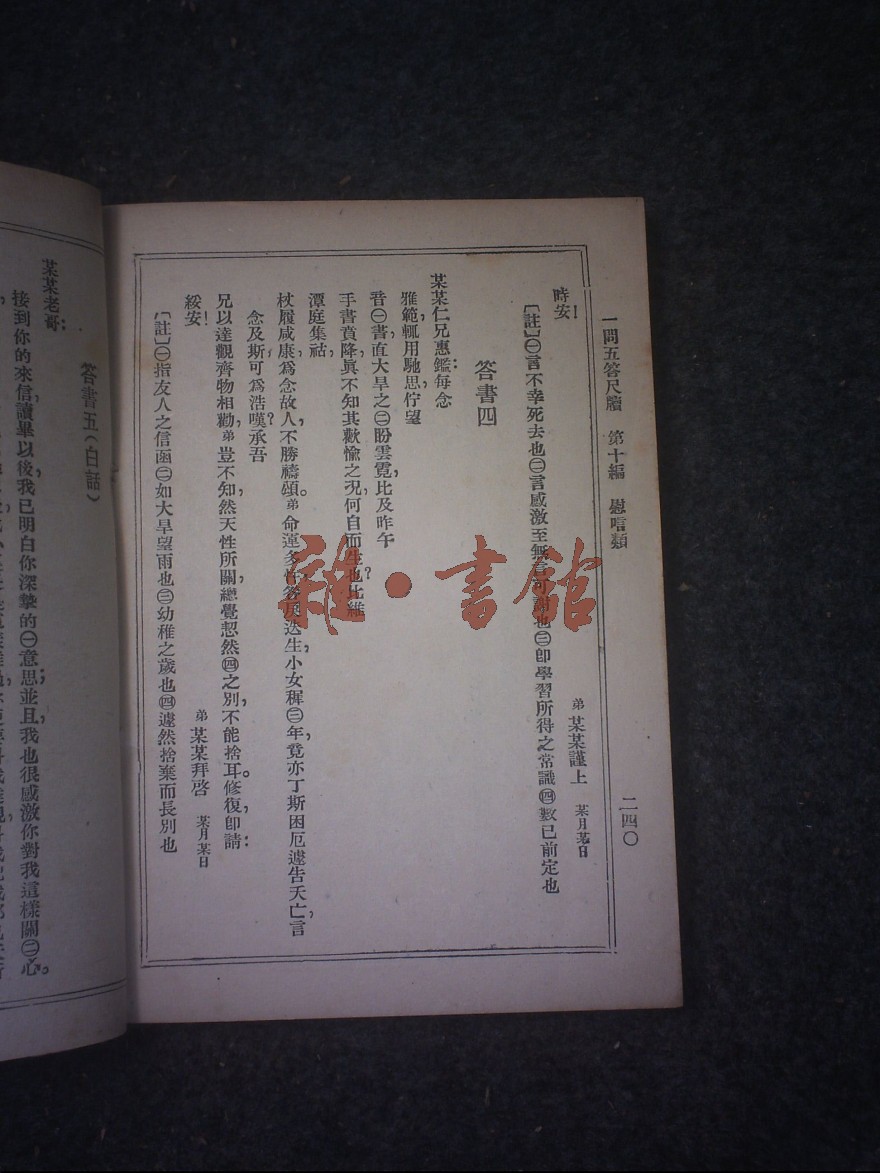 一問五答尺牘　第十編　慰唁類　二四〇
時安！　弟某某謹上　某月某日
〔註〕㊀言不幸死去也㊁言感激至無言可謝也㊂卽學習所得之常識㊃數已前定也
答書四
某某仁兄惠鑑：每念
雅範，輒用馳思，佇望
音㊀書，直大旱之㊁盼雲霓，比及昨午
手書賁降，眞不知其歡愉之況，何自而生也？比維
潭庭集祜，
枕履咸康，爲念故人，不勝禱頌。弟命運多，迭生，小女穉㊂年，竟亦丁斯困厄，遽告夭亡，言
念及斯，可爲浩嘆？承吾
兄以達觀齊物相勸，弟豈不知，然天性所關，總覺恝然㊃之別，不能捨耳。修復，卽請：
綏安！　弟某某拜啓　某月某日
〔註〕㊀指友人之信函㊁如大旱望雨也㊂幼稚之歲也㊃遽然捨棄而長別也
答書五（白話）
某某老哥：
接到你的來信，讀畢以後，我已明白你深摯的㊀意思；並且我也很感激你對我這樣關㊁心。
雜·書館